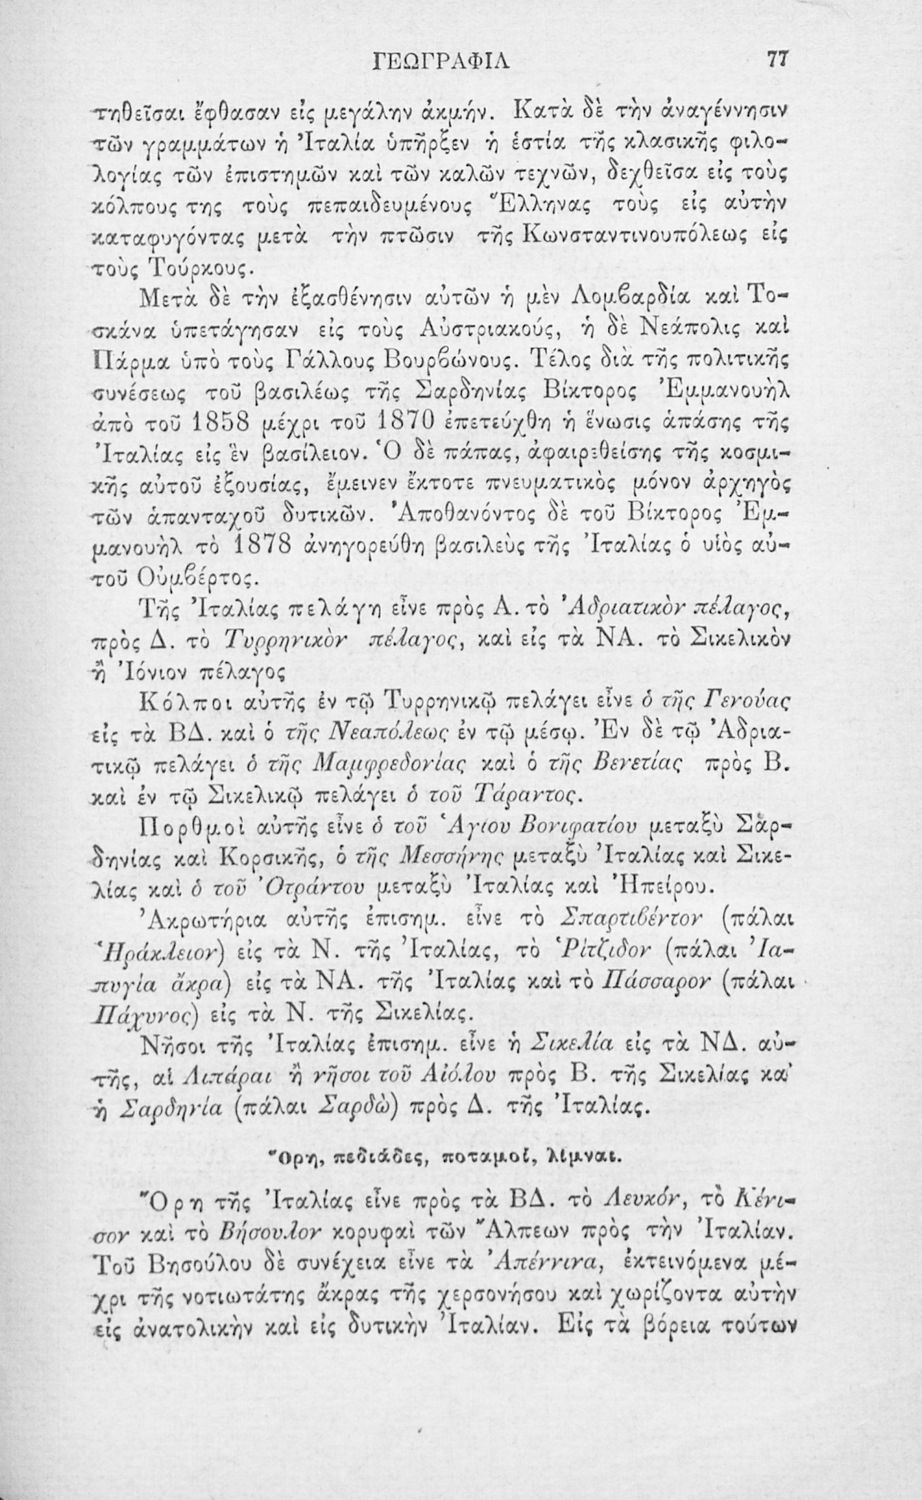 ΓΕΩΓΡΑΦΙΑ 77
τηθεῖσαι ἔφθασαν εἰς μεγάλην ἀκμήν. Κατὰ δὲ τὴν ἀναγέννησιν
τῶν γραμμάτων ἡ Ἰταλία ὑπῆρξεν ἡ ἑστία τῆς κλασικῆς φιλο-
λογίας τῶν ἐπιστημῶν καὶ τῶν καλῶν τεχνῶν, δεχθεῖσα εἰς τοὺς
κόλπους της τοὺς πεπαιδευμένους Ἕλληνας τοὺς εἰς αὐτὴν
καταφυγόντας μετὰ τὴν πτῶσιν τῆς Κωνσταντινουπόλεως εἰς
τοὺς Τούρκους.
Μετὰ δὲ τὴν ἐξασθένησιν αὐτῶν ἡ μὲν Λομβαρδία καὶ Το-
σκάνα ὑπετάγησαν εἰς τοὺς Αὐστριακούς, ἡ δὲ Νεάπολις καὶ
Πάρμα ὑπὸ τοὺς Γάλλους Βουρβώνους. Τέλος διὰ τῆς πολιτικῆς
συνέσεως τοῦ βασιλέως τῆς Σαρδηνίας Βίκτορος Ἐμμανουὴλ
ἀπὸ τοῦ 1858 μέχρι τοῦ 1870 ἐπετεύχθη ἡ ἕνωσις ἁπάσης τῆς
Ἰταλίας εἰς ἓν βασίλειον. Ὁ δὲ πάπας, ἀφαιρεθείσης τῆς κοσμι-
κῆς αὐτοῦ ἐξουσίας, ἔμεινεν ἔκτοτε πνευματικὸς μόνον ἀρχηγὸς
τῶν ἁπανταχοῦ δυτικῶν. Ἀποθανόντος δὲ τοῦ Βίκτορος Ἐμ-
μανουὴλ τὸ 1878 ἀνηγορεύθη βασιλεὺς τῆς Ἰταλίας ὁ υἱὸς αὐ-
τοῦ Οὑμβέρτος.
Τῆς Ἰταλίας πελάγη εἶνε πρὸς Α. τὸ Ἀδριατικὸν πέλαγος,
πρὸς Δ. τὸ Τυρρηνικὸν πέλαγος, καὶ εἰς τὰ ΝΑ. τὸ Σικελικὸν
ἢ Ἰόνιον πέλαγος
Κόλποι αὐτῆς ἐν τῷ Τυρρηνικῷ πελάγει εἶνε ὁ τῆς Γενούας
εἰς τὰ ΒΔ. καὶ ὁ τῆς Νεαπόλεως ἐν τῷ μέσῳ. Ἐν δὲ τῷ Ἀδρια-
τικῷ πελάγει ὁ τῆς Μαμφρεδονίας καὶ ὁ τῆς Βενετίας πρὸς Β.
καὶ ἐν τῷ Σικελικῷ πελάγει ὁ τοῦ Τάραντος.
Πορθμοὶ αὐτῆς εἶνε ὁ τοῦ Ἁγίου Βονιφατίου μεταξὺ Σαρ-
δηνίας καὶ Κορσικῆς, ὁ τῆς Μεσσήνης μεταξὺ Ἰταλίας καὶ Σικε-
λίας καὶ ὁ τοῦ Ὀτράντου μεταξὺ Ἰταλίας καὶ Ἠπείρου.
Ἀκρωτήρια αὐτῆς ἐπισημ. εἶνε τὸ Σπαρτιβέντον (πάλαι
Ἡράκλειον) εἰς τὰ Ν. τῆς Ἰταλίας, τὸ Ῥίτζιδον (πάλαι Ἰα-
πυγία ἄκρα) εἰς τὰ ΝΑ. τῆς Ἰταλίας καὶ τὸ Πάσσαρον (πάλαι
Πάχυνος) εἰς τὰ Ν. τῆς Σικελίας.
Νῆσοι τῆς Ἰταλίας ἐπισημ. εἶνε ἡ Σικελία εἰς τὰ ΝΔ. αὐ-
τῆς, αἱ Λιπάραι ἢ νῆσοι τοῦ Αἰόλου πρὸς Β. τῆς Σικελίας κα'
ἡ Σαρδηνία (πάλαι Σαρδὼ) πρὸς Δ. τῆς Ἰταλίας.
Ὄρη, πεδιάδες, ποταμοί, λίμναι.
Ὄρη τῆς Ἰταλίας εἶνε πρὸς τὰ ΒΔ. τὸ Λευκόν, τὸ Κένι-
σον καὶ τὸ Βήσουλον κορυφαὶ τῶν Ἄλπεων πρὸς τὴν Ἰταλίαν.
Τοῦ Βησούλου δὲ συνέχεια εἶνε τὰ Ἀπέννινα, ἐκτεινόμενα μέ-
χρι τῆς νοτιωτάτης ἄκρας τῆς χερσονήσου καὶ χωρίζοντα αὐτὴν
εἰς ἀνατολικὴν καὶ εἰς δυτικὴν Ἰταλίαν. Εἰς τὰ βόρεια τούτων